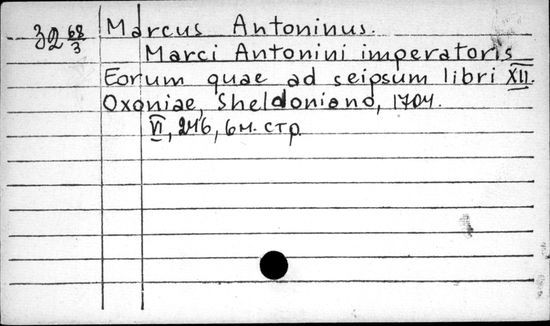 32 68/3
Marcus Antoninus.
Marci Antonini imperatoris
Eorum quae ad seipsum libri XII.
Oxoniae, Sheldoniano, 1704.
VI, 246, 6 н. стр